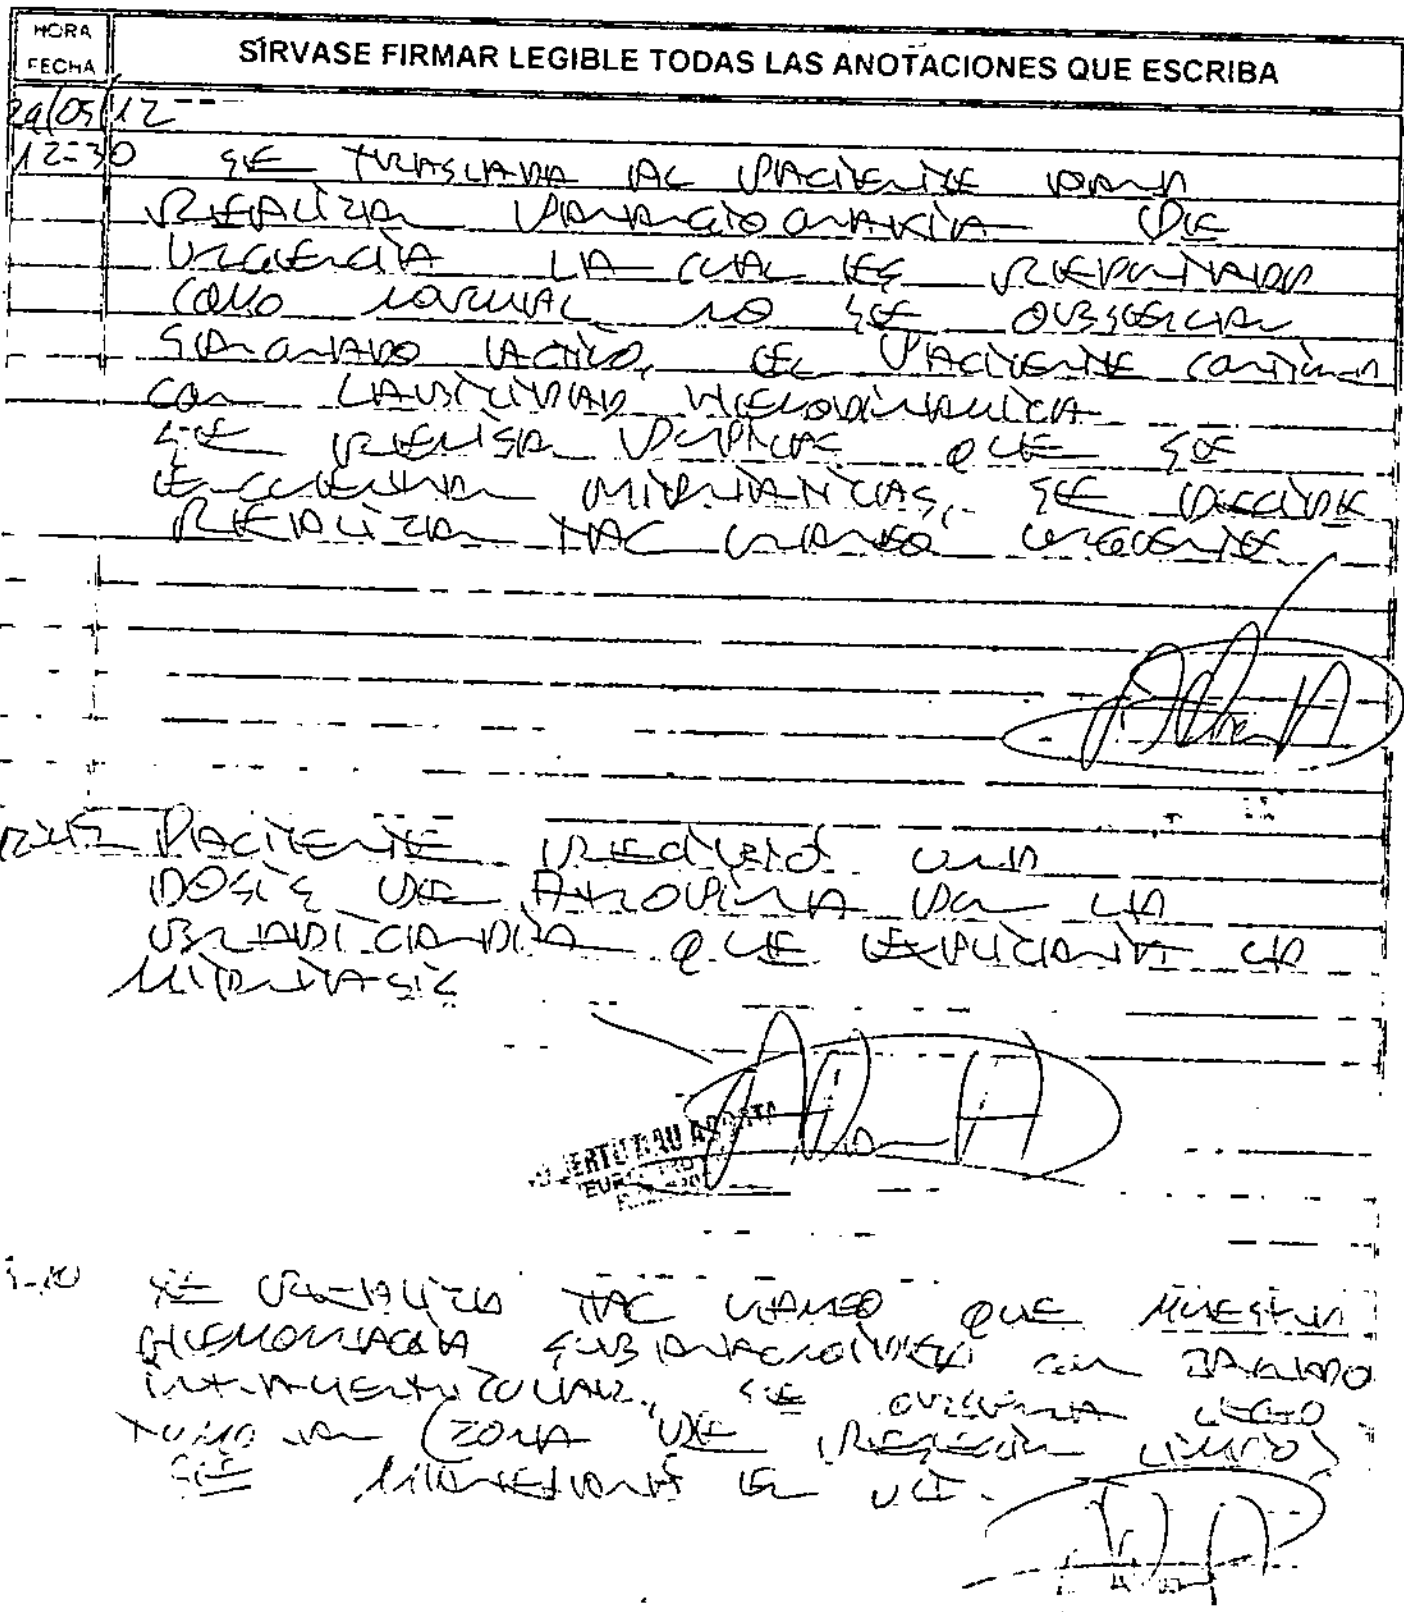 HORA
FECHA
SÍRVASE FIRMAR LEGIBLE TODAS LAS ANOTACIONES QUE ESCRIBA
29/05/12
12:30 SE TRASLADA AL PACIENTE PARA
REALIZAR PANANGIOGRAFIA DE
URGENCIA LA CUAL ES REPORTADA
COMO NORMAL NO SE OBSERVA
SANGRADO ACTIVO, EL PACIENTE CONTINUA
CON LABILIDAD HEMODINAMICA
SE REVISA PUPILAS QUE SE
ENCUENTRAN MIDRIATICAS, SE DECIDE
REALIZAR TAC CRANEO URGENTE
PACIENTE RECIBIÓ UNA
DOSIS DE ATROPINA POR LA
BRADICARDIA QUE EXPLICARIA LA
MIDRIASIS
SE REALIZA TAC CRANEO QUE MUESTRA
HEMORRAGIA SUBARACNOIDEA CON SANGRADO
INTRAVENTRICULAR, SE OBSERVA LECHO
TUMORAL (ZONA DE RESECCION LIMPIO)
SE MANEJARA EN UCI.